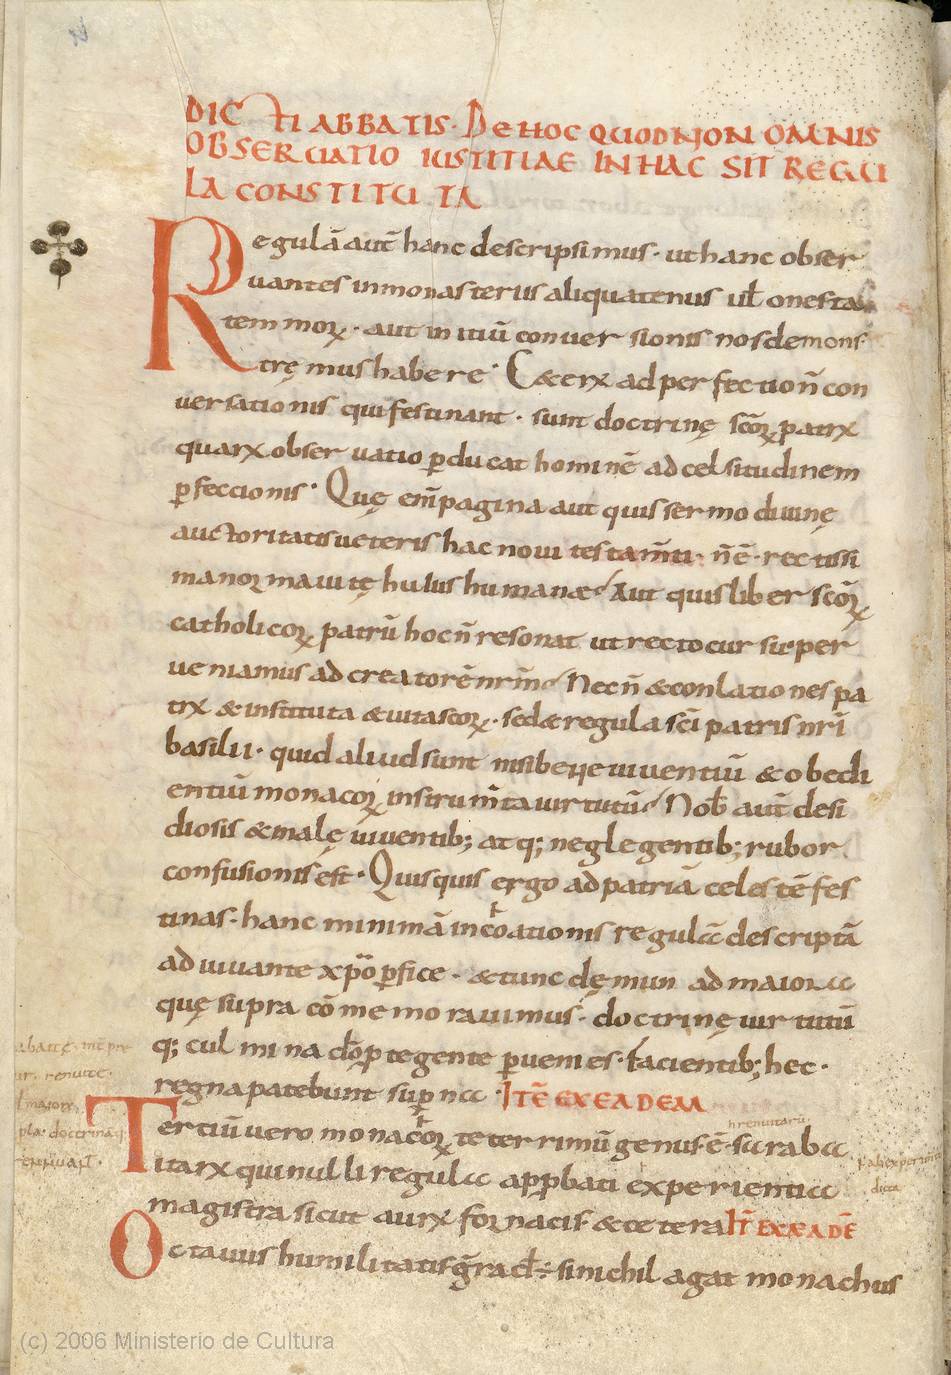 DIC TI ABBATIS. DE HOC QUOD NON OMNIS
OBSERUATIO IUSTITIAE IN HAC SIT REGU
LA CONSTITUTA
Regulā autē hanc descripsimus. ut hanc obser
uantes in monasteriis aliquatenus ul̄ onesta
tem moꝝ. aut initiū conuersionis nos demons
trę mus habere. Ceterx ad perfectionē con
uersationis qui festinant. sunt doctrinę sc̄oꝝ patrx
quarx obseruatio ꝑducat hominē ad celsitudinem
ꝑfeccionis. Quę em̄ pagina aut quis sermo diuinę
auctoritatis ueteris hac noui testam̄ti. n̄ ē rectissi
ma norma uitę huius humanae. Aut quis liber sc̄oꝝ
catholicoꝝ patrū hoc n̄ resonat ut recto cursu per
ueniamus ad creatorē nr̄m. Nec n̄ & conlationes pa
trx & instituta & uita scoꝝ. sed & regula sc̄i patris nr̄i
basilii. quid aliud sunt nisi bene uiuentiū & obedi
entiū monacoꝝ instrum̄ta uirtutū. Nob̄ aut̄ desi
diosis & malę uiuentib; atq; neglegentib; rubor
confusionis est. Quisquis ergo ad patriā celestē fes
tinas. hanc minimā incoationis regulā descriptā
adiuuante xp̄o ꝑfice. & tunc demum ad maiora
quę supra cōmemorauimus. doctrinę uirtutū
q; culmina dō ꝓtegente ꝑuenies. facientib; hec.
regna patebunt supna. ITĒ EX EADEM
Tertiū uero monacoꝝ teterrimū genus ē. saraba
itarx qui nulli regula approbati experientia
magistra sicut aurx fornacis. & cetera IT̄ EX EADĒ
Octauus humilitatis gradꝰ. si nichil agat monachus
(c) 2006 Ministerio de Cultura